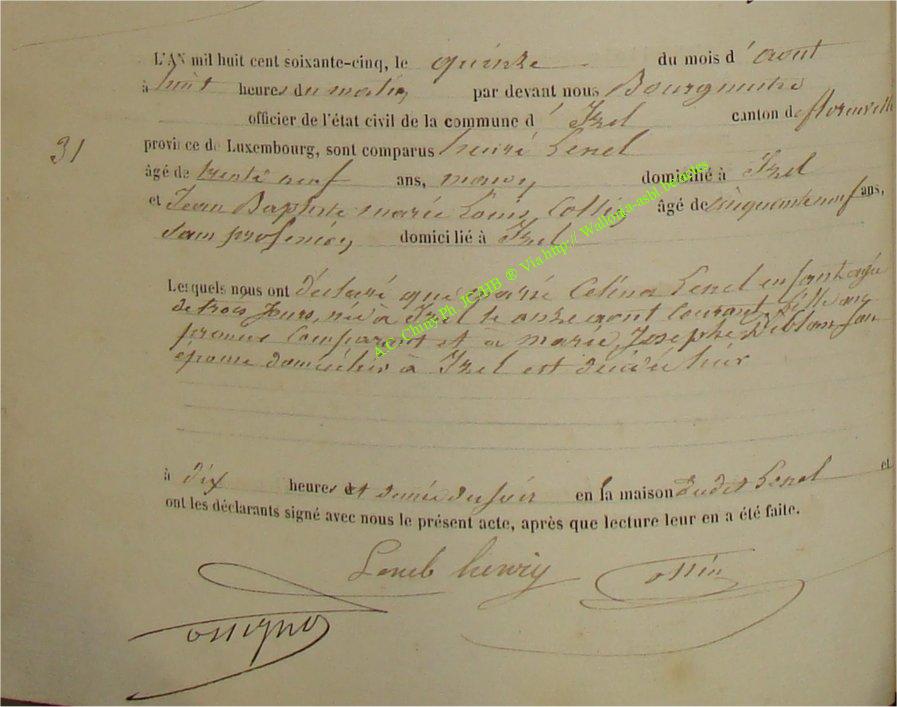 L'AN mil huit cent soixante-cinq, le quinze du mois d' aout
à huit heures du matin, par devant nous Bourgmestre
officier de l'état civil de la commune d' Izel canton de florenville
31 province de Luxembourg, sont comparus henri Lenel
âgé de trente neuf ans, domicilié à Izel
et Jean Baptiste marie Louis âgé de cinquante neuf ans,
sans profession, domicilié à Izel
Lesquels nous ont déclaré que marie Celina Lenel enfant agée
de trois jours, née à Izel le onze aout courant, fille du
premier Comparant et a marie Josephe Leblan son
épouse domiciliés à Izel est décédée hier
à dix heures et demie du soir en la maison dudit Lenel et
ont les déclarants signé avec nous le présent acte, après que lecture leur en a été faite.
henry
A.C. Chiny Ph. JC-HB ® Via http:// Wallonia-asbl.be/etles